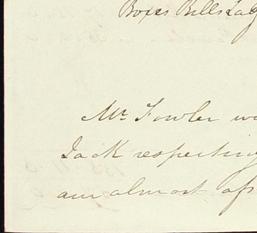 Boxes Bills Lad
Mr Fowler w
Jack respecting
am almost